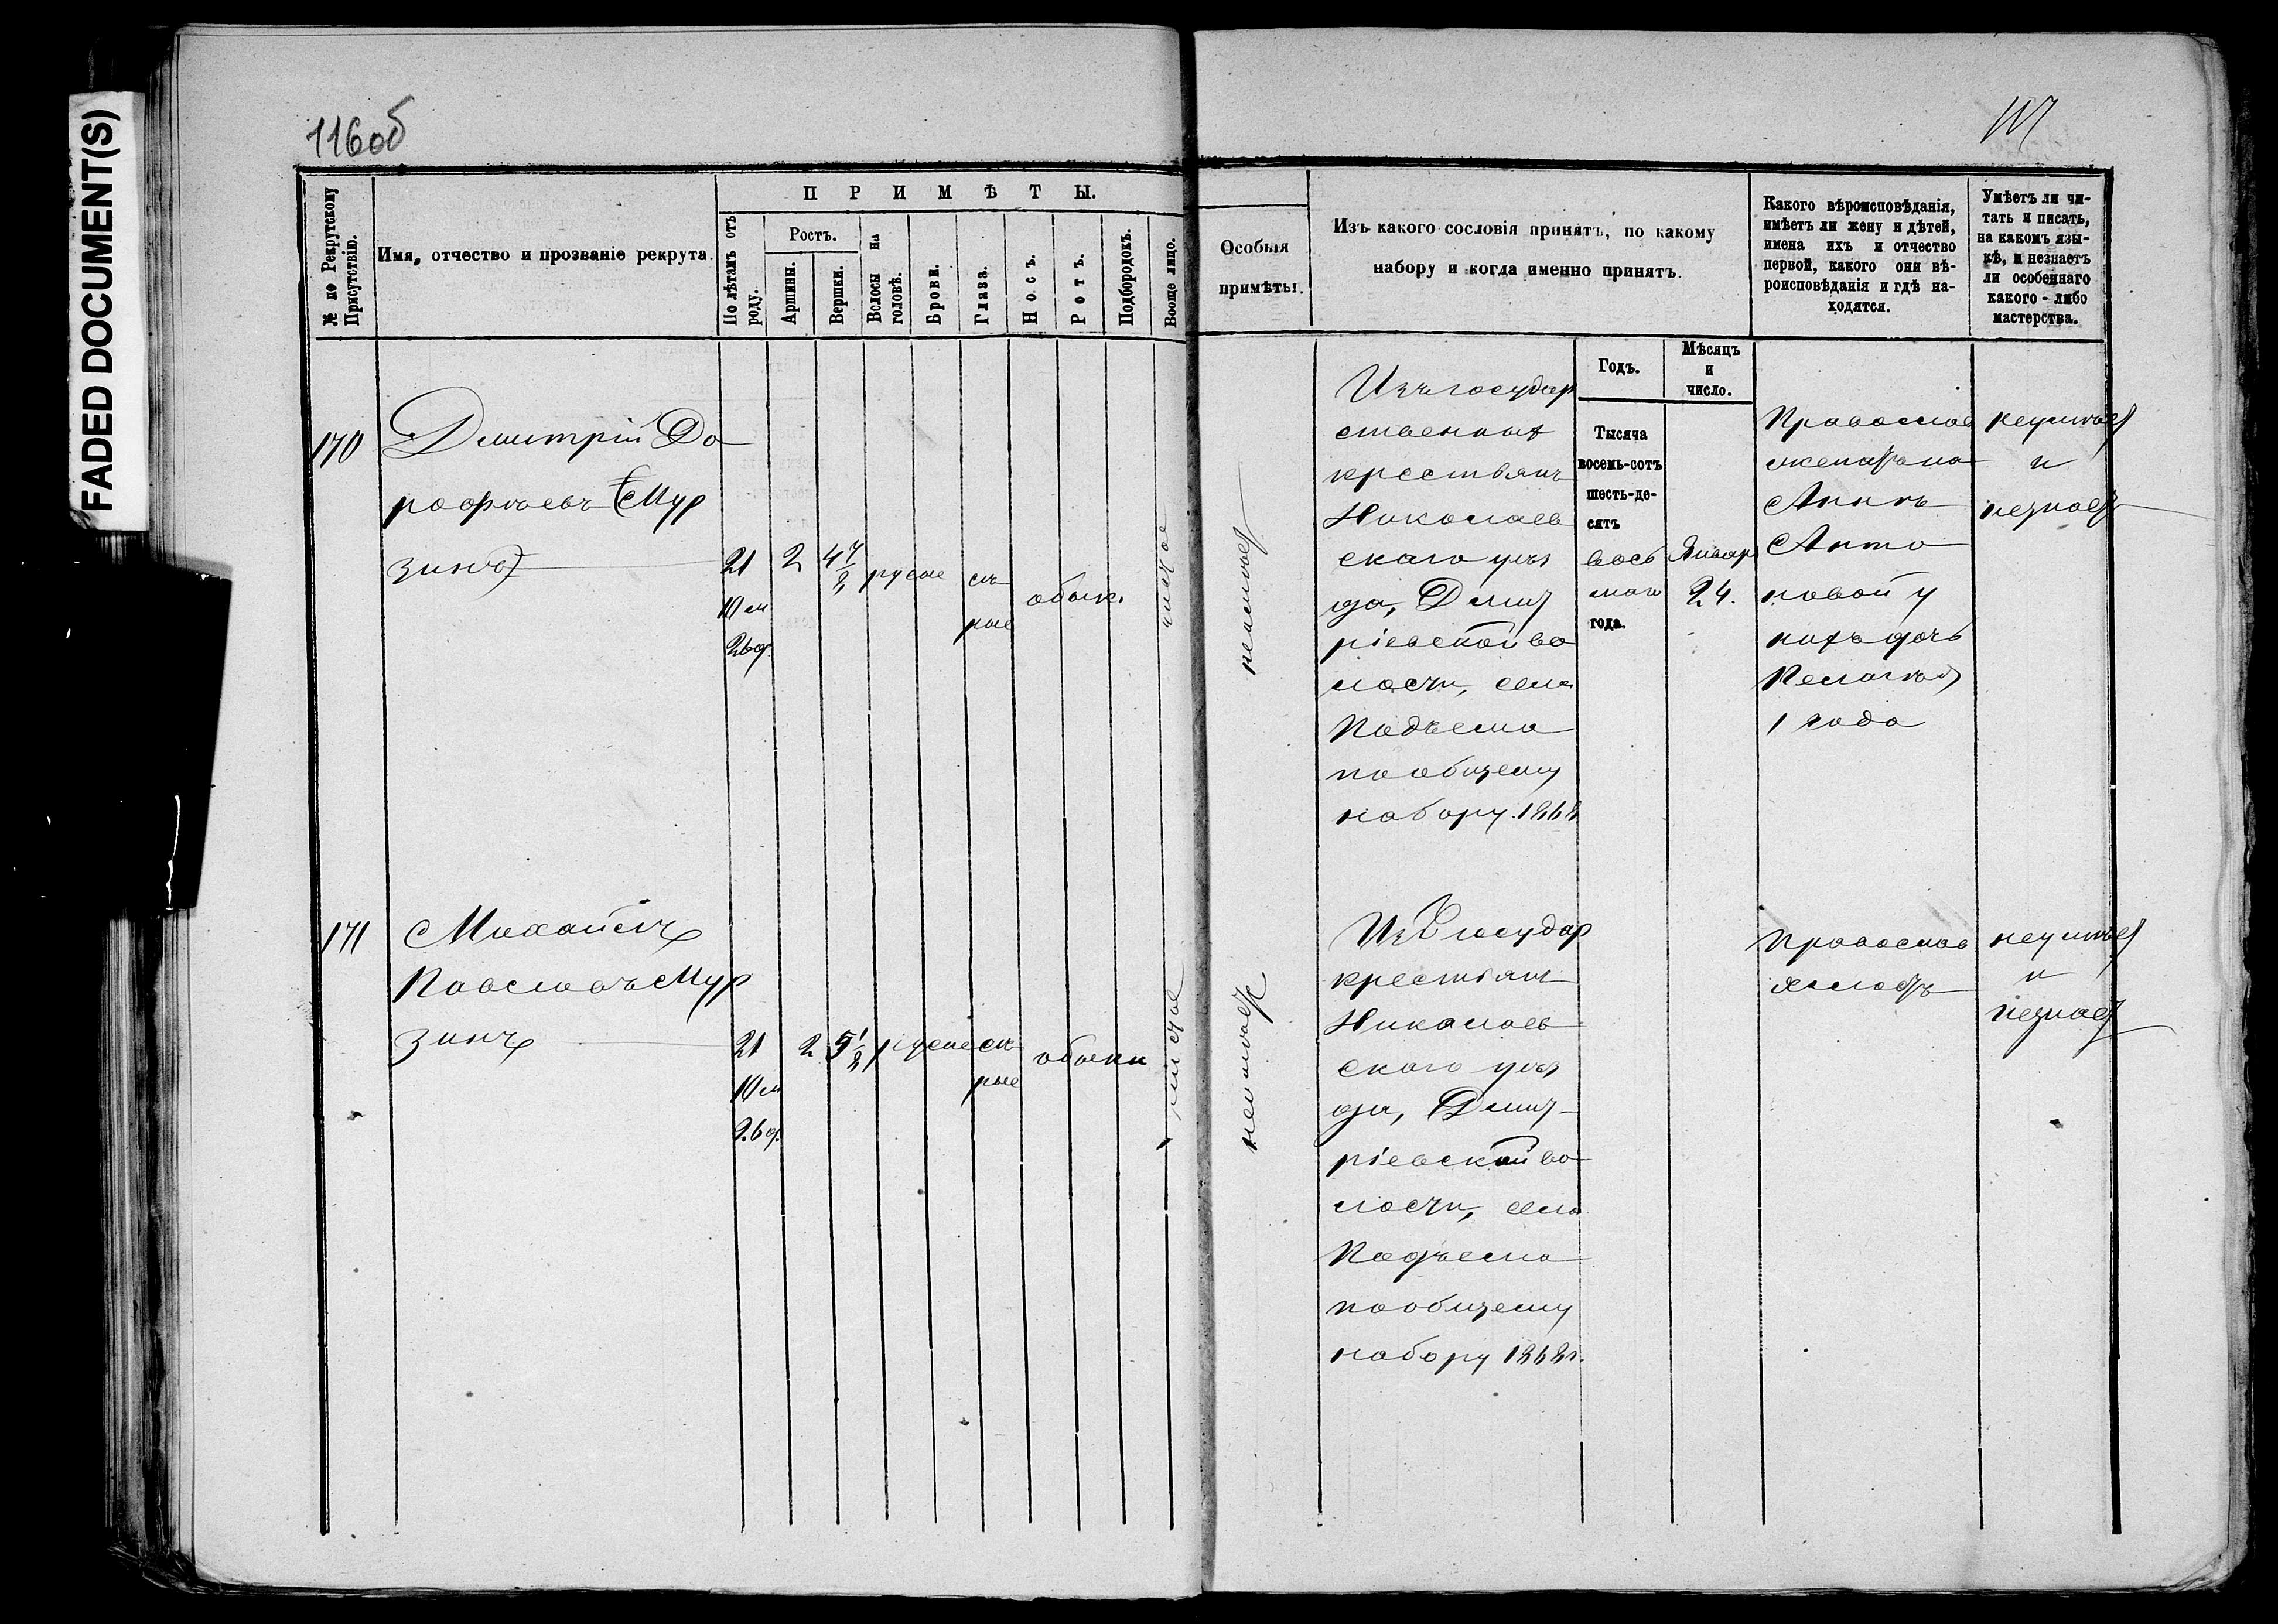 FADED DOCUMENT(S)
116об
117
№ по Рекрутскому Присутствію.
Имя, отчество и прозваніе рекрута.
ПРИМѢТЫ.
По лѣтамъ отъ роду.
Ростъ.
Аршины.
Вершки.
Волосы на головѣ.
Брови.
Глаза.
Носъ.
Ротъ.
Подбородокъ.
Вооще лицо.
Особыя
примѣты.
Изъ какого сословія принятъ, по какому
набору и когда именно принятъ.
Какого вѣроисповѣданія,
имѣетъ ли жену и дѣтей,
имена ихъ и отчество
первой, какого они вѣ-
роисповѣданія и гдѣ на-
ходятся.
Умѣетъ ли чи-
тать и писать,
на какомъ язы-
кѣ, и незнаетъ
ли особеннаго
какого-либо
мастерства.
Годъ.
Мѣсяцъ
и
число.
170
Дмитрій До
рофѣевъ Мур
зинъ
21
10 м
26 д.
2
4 7/8
русые
сѣ
рые
обыкн.
чистое
неимѣетъ
Изъ государ
ственныхъ
крестьянъ
Николаев
скаго уѣз
да, Дмит
ріевской во
лости, села
Подъема
по общему
набору 1868
Тысяча
восемь-сотъ
шесть-де-
сятъ
вось
маго
года.
Январ
24.
Православ
женатъ на
Аннѣ
Анто
новой у
нихъ дочь
Пелагѣя
1 года
неумѣет
и
незнает
171
Михайлъ
Павловъ Мур
зинъ
21
10 м
26 д.
2
5 1/8
русые
сѣ
рые
обыкн
чистое
неимѣетъ
Изъ государ
крестьянъ
Николаев
скаго уѣз
да, Дмит-
ріевской во
лости, села
Подъема
по общему
набору 1868 г.
Православ
холостъ
неумѣет
и
незнает